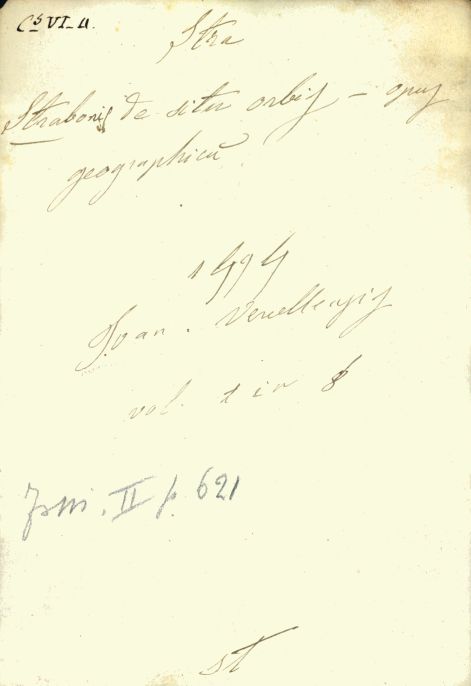 C⁵ VI_a.
Stra
Strabonis de situ orbis – opus
geographicū
1494
Joan. Vercellensis
vol. 1 in 8
II p. 621
st